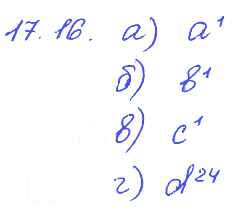 17.16. а) a¹
б) b¹
в) c¹
г) d²⁴